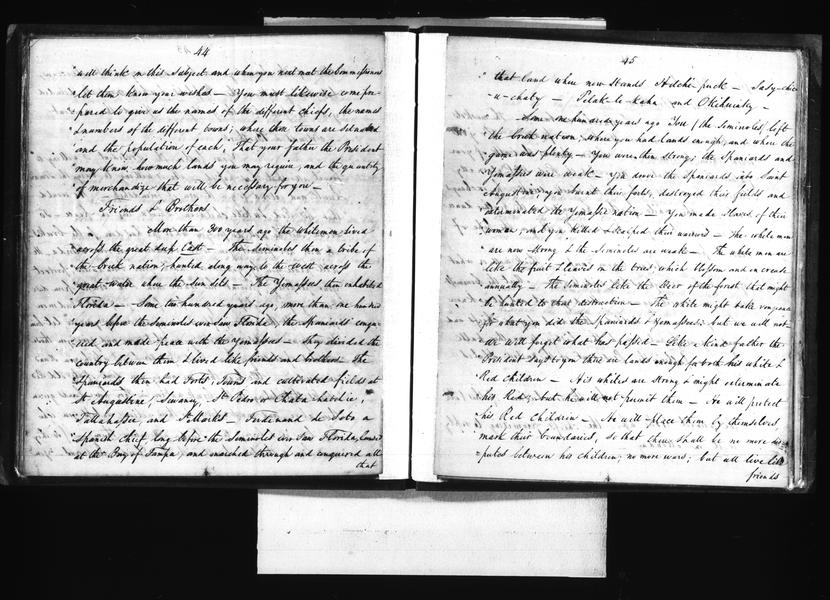 44
will think on this subject and when you next meet the Commissioners
let them know your wishes — You must likewise come pre-
pared to give us the names of the different chiefs, the names
& numbers of the different towns; where those towns are situated
and the population of each, that your father the President
may know how much lands you may require, and the quantity
of merchandize that will be necessary for you —
Friends & Brothers
More than 300 years ago the white men lived
across the great deep East — The Seminoles then a tribe of
the Creek nation, hunted along way to the west across the
great water where the sun sets — The Yemassees then inhabited
Florida — Some two hundred years ago, more than one hundred
years before the Seminoles ever saw Florida, the Spaniards conque-
red and made peace with the Yemassees — They divided the
country between them & lived like friends and brothers The
Spaniards then had Forts, Towns and cultivated fields at
St Augustine, Suwany, St Pedro or Chata
Tallahassee, and St Marks — Ferdinand de Soto a
Spanish chief long before the Seminoles ever saw Florida, landed
at the Bay of Tampa, and marched through and conquered all
that
45
that land where now stands Hitche puck —
u-chaty — Pelak-le-kaha and Okihumky —
Some one hundred years ago You (the Seminoles) left
the Creek nation; where you had lands enough, and where the
game was plenty — You were then strong; the Spaniards and
Yemassees were weak — You drove the Spaniards into Saint
Augustine, you burnt their forts, destroyed their fields and
exterminated the Yemassee nation — You made slaves of their
women, and you killed & scalped their warriors — The white men
are now strong & the Seminoles are weak — The white men are
like the fruit & leaves on the trees, which blossom and increase
annually — The Seminoles like the Deer of the forest that might
be hunted to that destruction — The white might take vengeance
for what you did the Spaniards & Yemassees; but we will not
We will forget what has passed — Like a kind father the
President says to you there are lands enough for both his white &
Red Children — His whites are strong & might exterminate
his Red; but he will not permit them — He will protect
his Red Children — He will place them by themselves,
mark their boundaries, so that there shall be no more dis-
putes between his children; no more wars; but all live like
friends